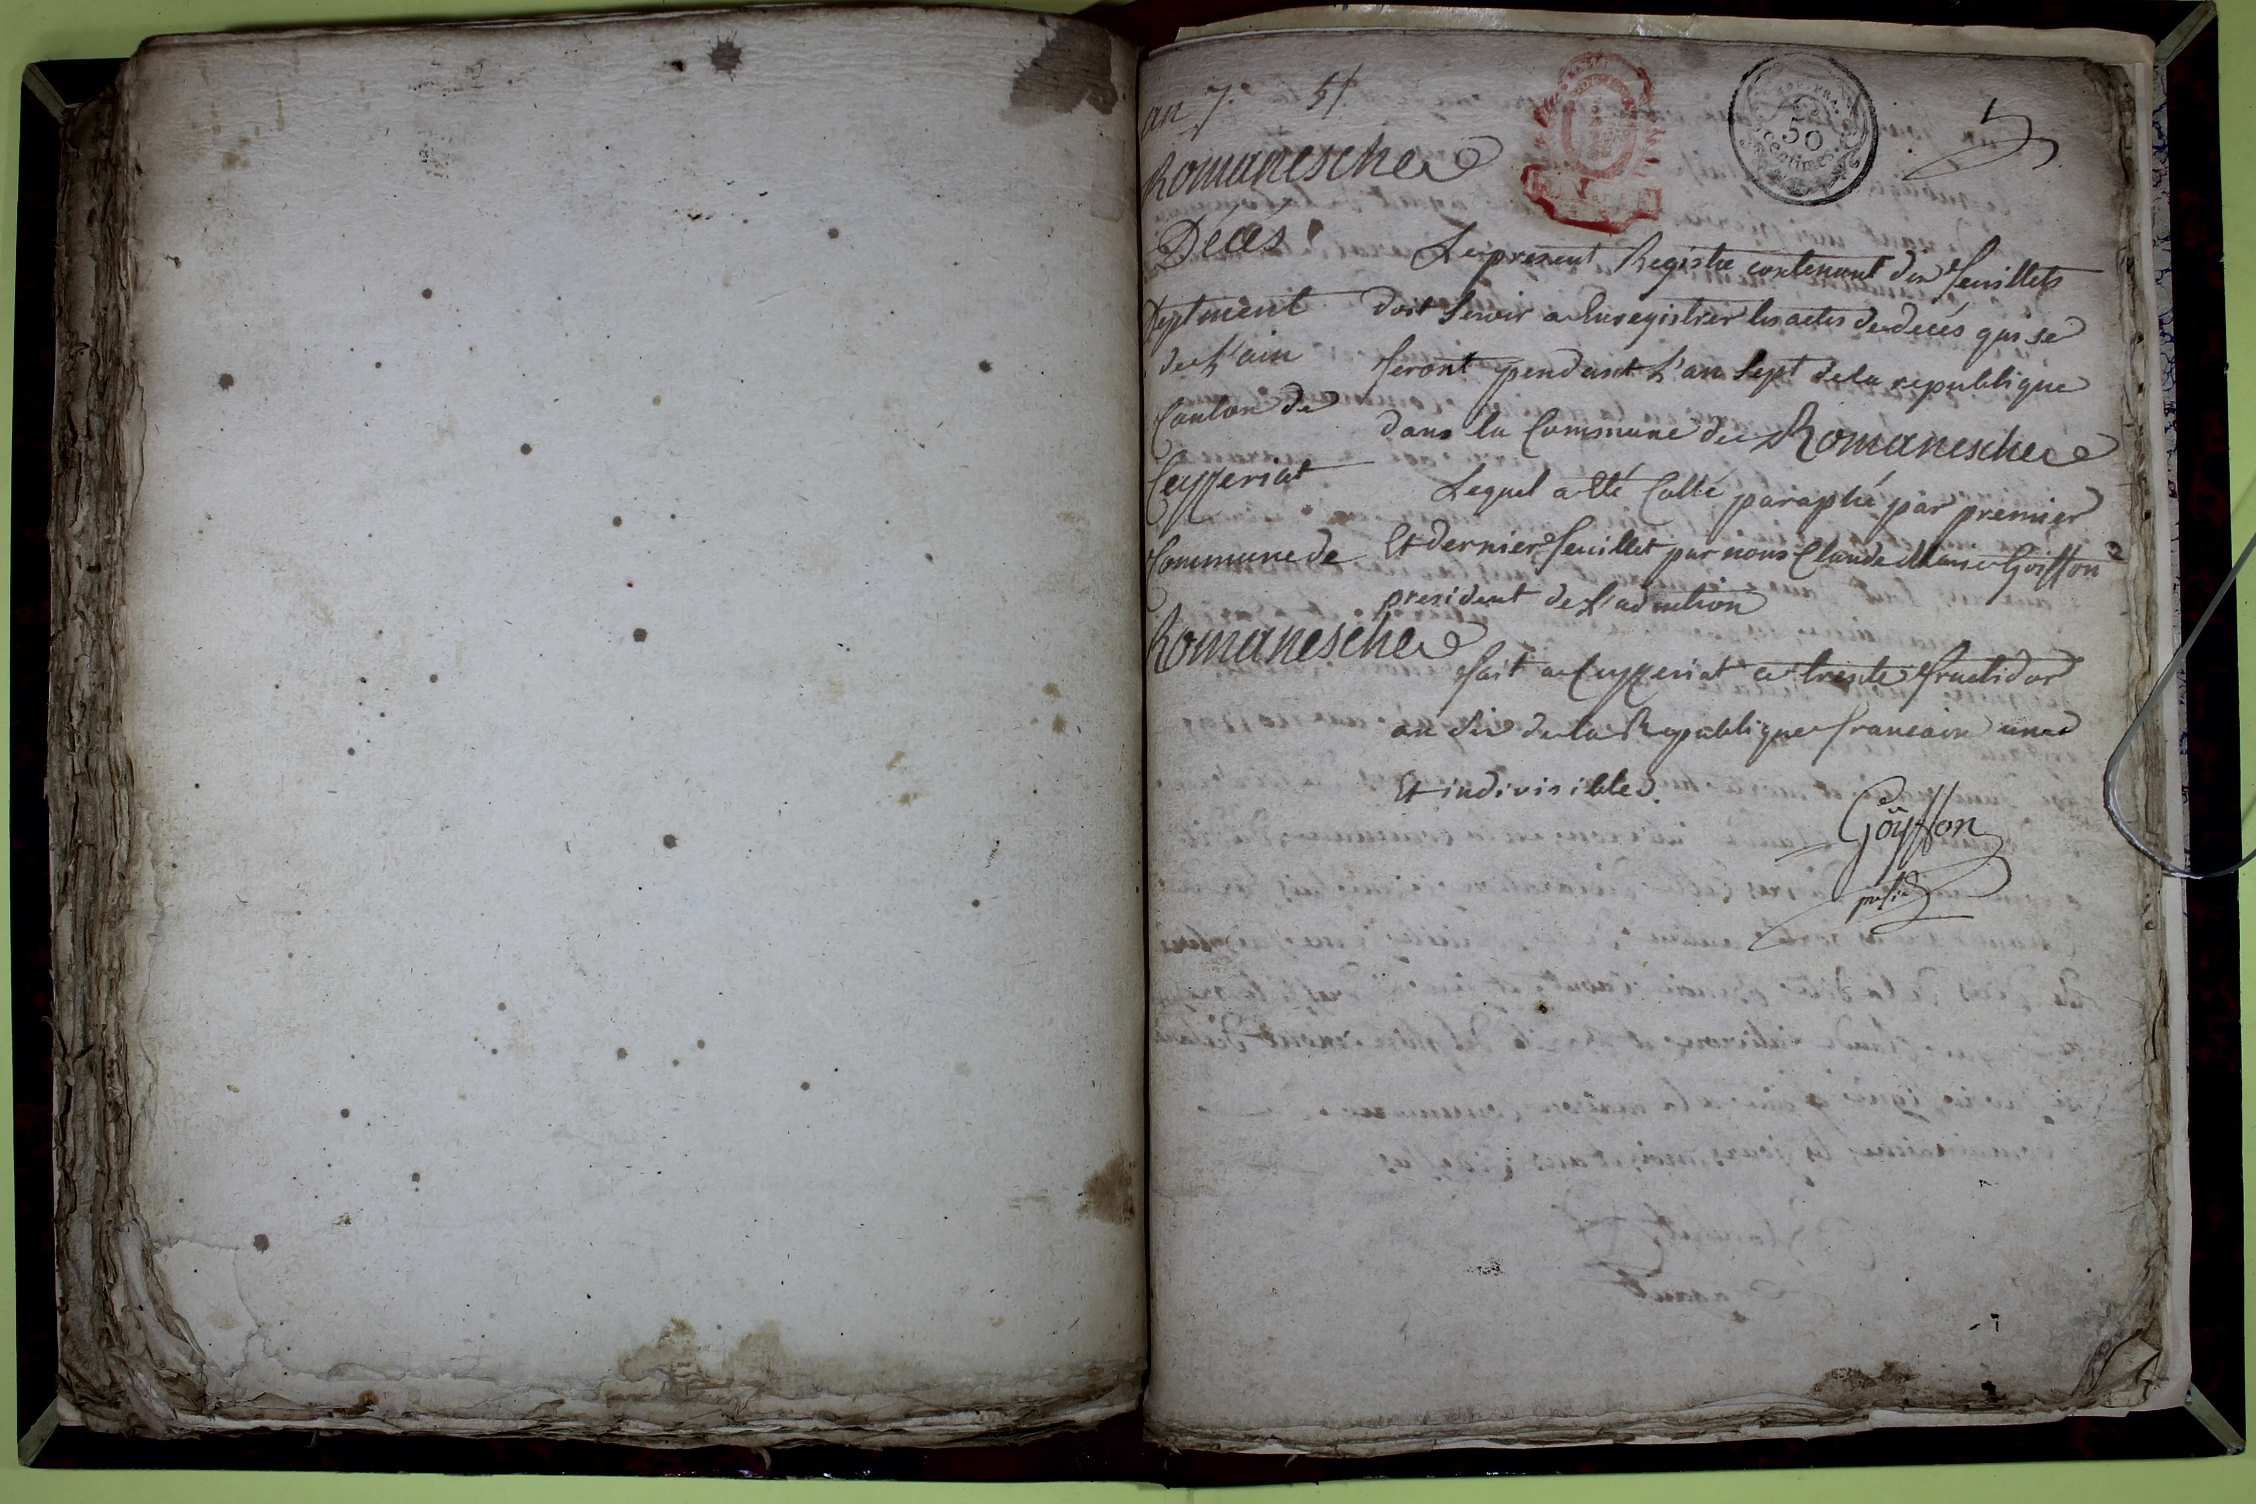 an 7.
Romanesche
Décés
Deptment
de L'ain
Canton de
Ceyzeriat
Commune de
Romanesche
50
Centimes
Le present Registre contenant dix feuillets
doit servir a Enregistrer les actes de decés qui se
feront pendant L'an sept de la republique
dans la Commune de Romanesche
Lequel a été Cotté paraphé par premier
Et dernier feuillet par nous Claude Marie Goiffon
president de L'admtion
fait a Ceyzeriat ce trente fructidor
an six de la Republique francaise une
Et indivisible.
Goÿffon